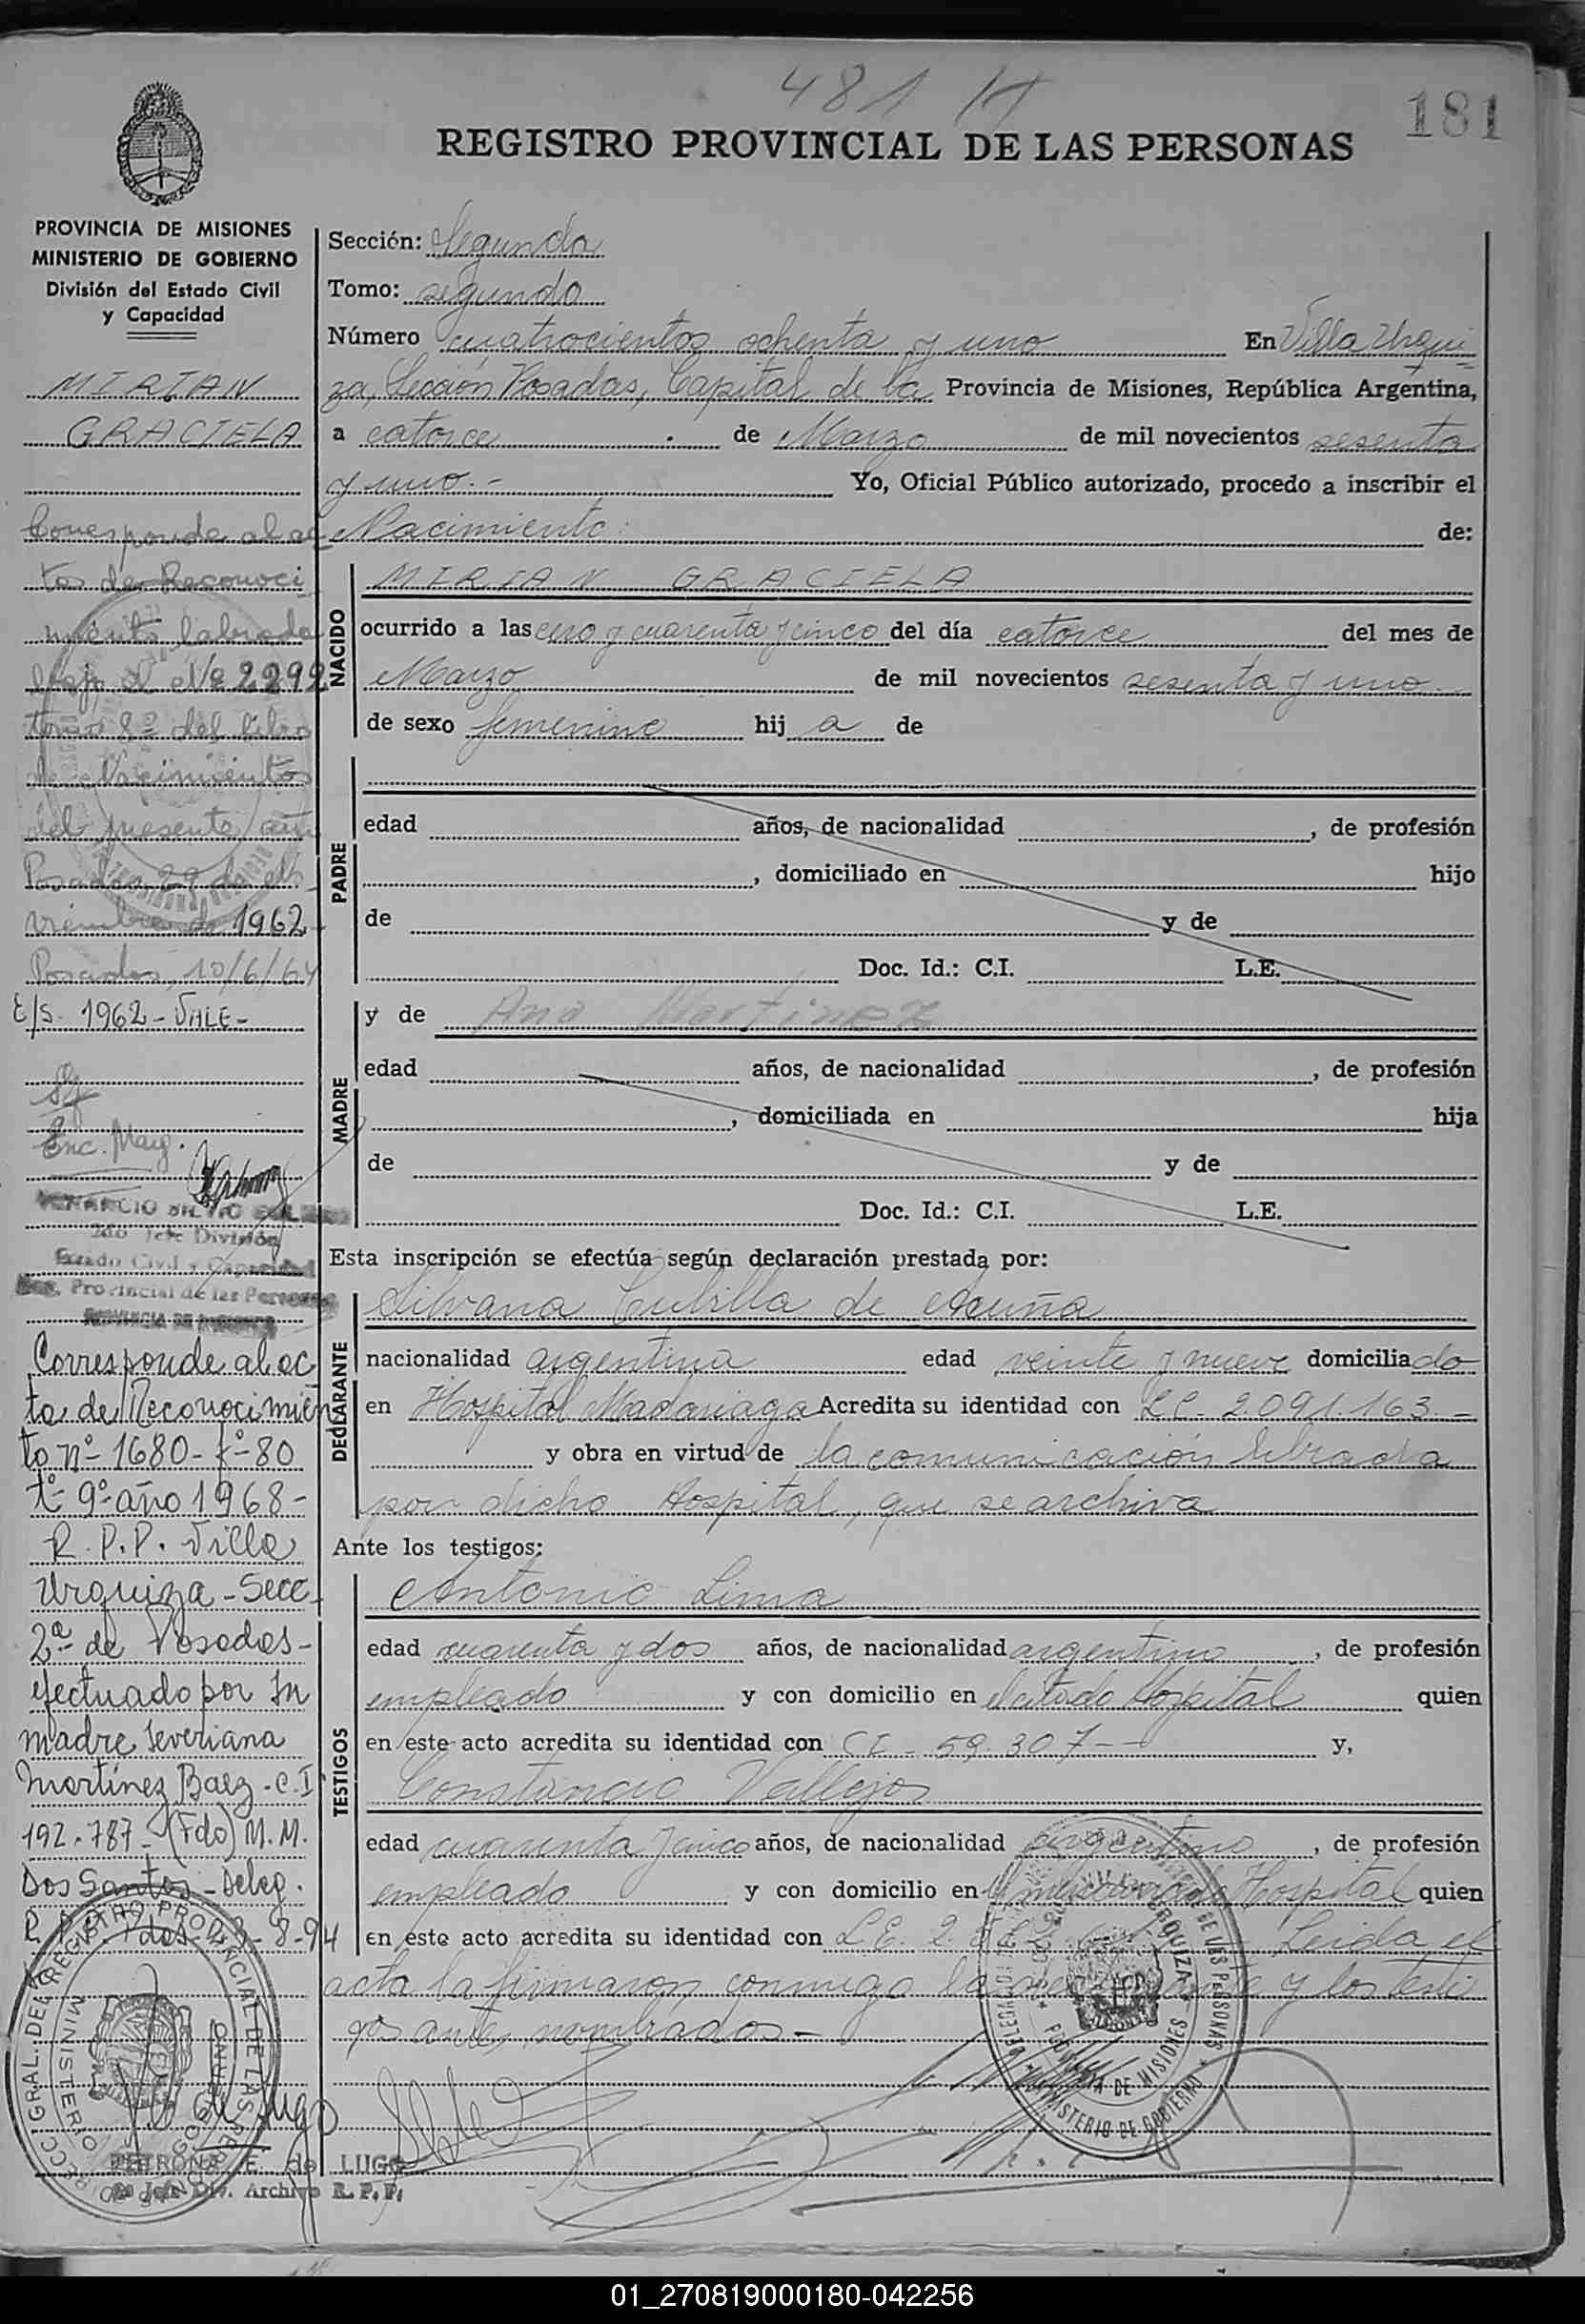 481
181
REGISTRO PROVINCIAL DE LAS PERSONAS
PROVINCIA DE MISIONES
MINISTERIO DE GOBIERNO
División del Estado Civil
y Capacidad
MIRIAN
GRACIELA
Corresponde al ac
ta de Reconoci
miento labrada
Nº 2292
tomo 8º del libro
de Nacimientos
del presente año
Posadas, 29 de
viembre de 1962
Posadas, 10/6/64
E/S. 1962 - VALE -
Enc. Marg.
2do Jefe División
Estado Civil y Capacidad
Reg. Provincial de las Personas
PROVINCIA DE MISIONES
Corresponde al ac
ta de Reconocimien
to nº 1680 - fº 80
tº 9º año 1968 -
R. P. P. Villa
Urquiza - Secc
2ª de Posadas -
efectuado por su
madre Severiana
Martínez Baez - C.I
192.787 - (Fdo) M. M.
Dos Santos - Deleg.
R. P. P. Pdas - 8-94
PETRONA E. de LUGO
Jefe Div. Archivo R. P. P.
Sección: Segunda
Tomo: segundo
Número cuatrocientos ochenta y uno En Villa Urqui
za, Sección Posadas, Capital de la Provincia de Misiones, República Argentina,
a catorce de Marzo de mil novecientos sesenta
y uno.- Yo, Oficial Público autorizado, procedo a inscribir el
Nacimiento de:
NACIDO
MIRIAN GRACIELA
ocurrido a las cero y cuarenta y cinco del día catorce del mes de
Marzo de mil novecientos sesenta y uno
de sexo femenino hij a de
PADRE
edad años, de nacionalidad , de profesión
, domiciliado en hijo
de y de
Doc. Id.: C.I. L.E.
MADRE
y de Ana Martinez
edad años, de nacionalidad , de profesión
, domiciliada en hija
de y de
Doc. Id.: C.I. L.E.
Esta inscripción se efectúa según declaración prestada por:
DECLARANTE
Silvana Cubilla de Acuña
nacionalidad argentina edad veinte y nueve domiciliado
en Hospital Madariaga Acredita su identidad con LC - 2.091.163 -
y obra en virtud de la comunicación librada
por dicho Hospital, que se archiva
Ante los testigos:
TESTIGOS
Antonio Lima
edad cuarenta y dos años, de nacionalidad argentino , de profesión
empleado y con domicilio en el citado Hospital quien
en este acto acredita su identidad con CI - 59.307 - y,
Constancio Vallejos
edad cuarenta y cinco años, de nacionalidad argentino , de profesión
empleado y con domicilio en el mencionado Hospital quien
en este acto acredita su identidad con L.E. 2. Leida el
acta la firmaron conmigo la y los testi
gos antes nombrados -
DELEGACION VILLA URQUIZA
PROVINCIA DE MISIONES
MINISTERIO DE GOBIERNO
DIRECC. GRAL. DEL REGISTRO PROVINCIAL DE LAS PERSONAS
MINISTERIO DE GOBIERNO
01_270819000180-042256